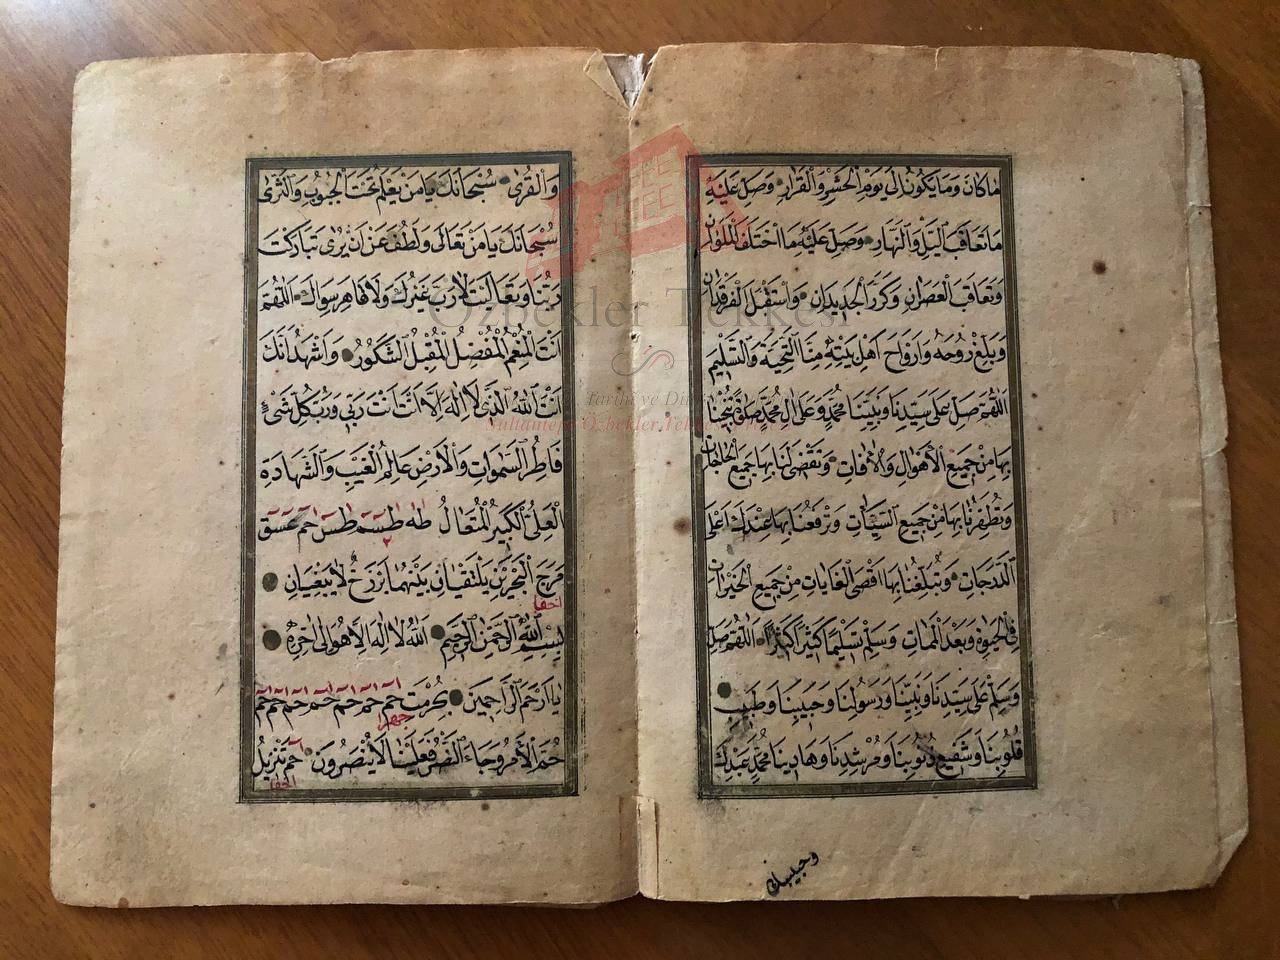 ما كان وما يكون الى يوم الحشر والقرار وصل عليه
ما تعاقب اليل والنهار وصل عليه ما اختلف الملوان
وتعاقب العصران وكرر الجديدان واستقبل الفرقدان
وبلغ روحه وارواح اهل بيته منا التحية والتسليم
اللهم صل على سيدنا ونبينا محمد وعلى ال محمد صلوة تنجينا
بها من جميع الاهوال والافات وتقضى لنا بها جميع الحاجات
وتطهرنا بها من جميع السيئات وترفعنا بها عندك اعلى
الدرجات وتبلغنا بها اقصى الغايات من جميع الخيرات
فى الحيوة وبعد الممات وسلم تسليما كثيرا كثيرا اللهم صل
وسلم على سيدنا ونبينا ورسولنا وحبيبنا وطبيب
قلوبنا وشفيع ذنوبنا ومرشدنا وهادينا محمد عبدك
والقرى سبحانك يا من يعلم تحت الجبوب والثرى
سبحانك يا من تعالى ولطف عن ان يرى تباركت
ربنا وتعاليت لا رب غيرك ولا قاهر سواك اللهم
انت المنعم المفضل المقبل الشكور واشهد انك
انت الله الذى لا اله الا انت انت ربى ورب كل شىء
فاطر السموات والارض عالم الغيب والشهادة
العلى الكبير المتعال طه طسم طس حم عسق
٢
مرج البحرين يلتقيان بينهما برزخ لا يبغيان
اخفا
بسم الله الرحمن الرحيم الله لا اله الا هو الى اخره
يا ارحم الراحمين بحرمت حم حم حم حم حم حم حم
جهرا
حم الامر وجاء النصر فعلينا لا ينصرون حم تنزيل
اخفا
Özbekler Tekkesi
Sultantepe Özbekler Tekkesi